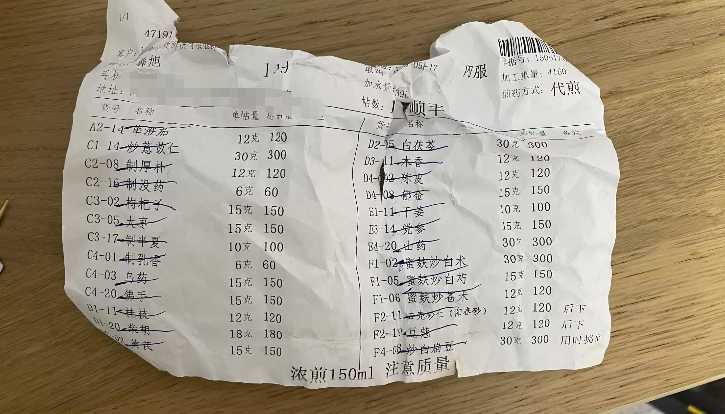 47191
旭
地址:
货号 名称 单帖量
A2-14 12克 120
C1-14 炒薏苡仁 30克 300
C2-08 制厚朴 12克 120
C2-16 制没药 6克 60
C3-02 枸杞子 15克 150
C3-05 大枣 15克 150
C3-17 制半夏 10克 100
C4-01 制乳香 6克 60
C4-03 乌药 15克 150
C4-20 15克 150
D1-11 桂枝 12克 120
D1-20 柴胡 18克 180
15克 150
内服
加工批量: 4160
制药方式: 代煎
帖数: 顺丰
名称
D2-05 白茯苓 30克 300
D3-11 木香 12克 120
D4-02 陈皮 12克 120
D4-08 15克 150
E1-11 干姜 10克 100
E3-14 党参 15克 150
E4-20 山药 30克 300
F1-02 蜜麸炒白术 30克 300
F1-05 蜜麸炒白芍 15克 150
F1-06 蜜麸炒苍术 12克 120
F2-11 12克 120 后下
F2-19 豆蔻 12克 120 后下
F4-08 炒白扁豆 30克 300 用时捣碎
浓煎150ml 注意质量